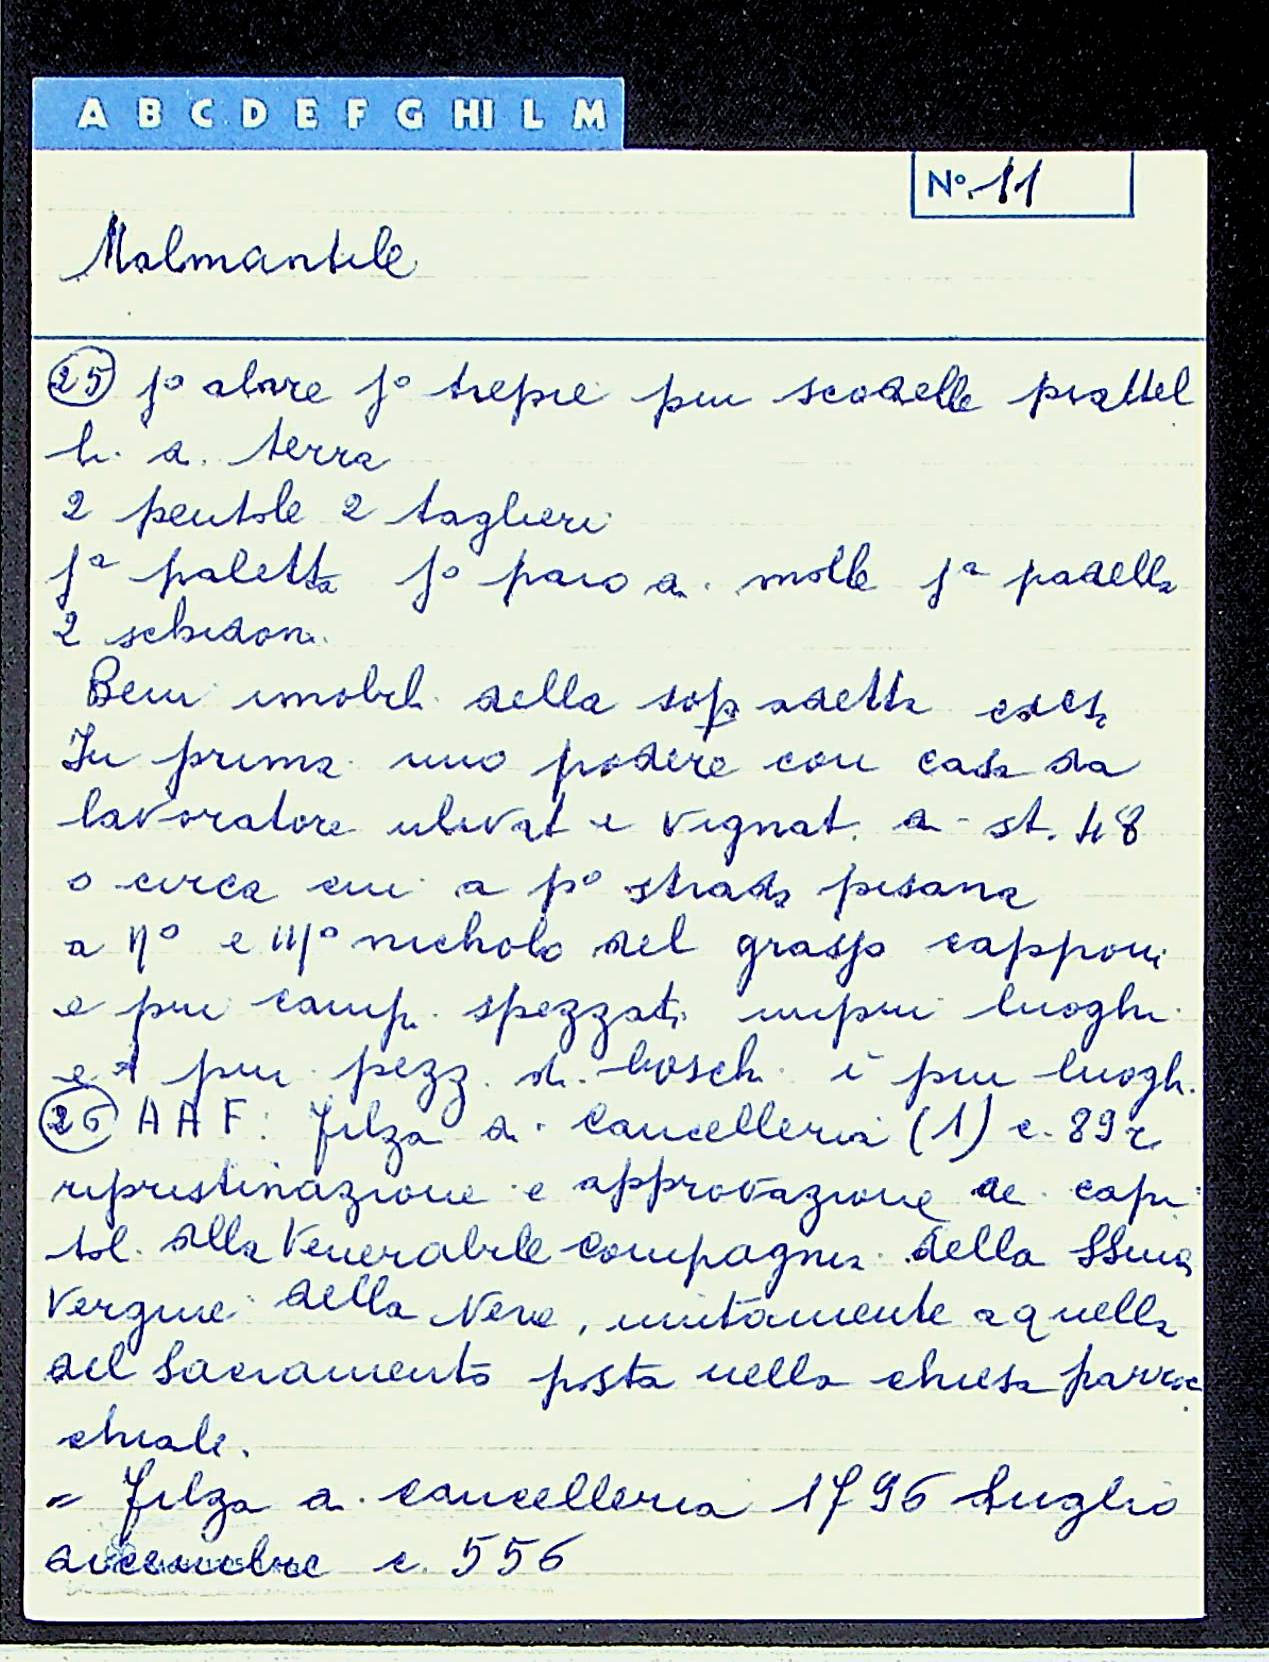 A B C D E F G HI L M
No. 11
Malmantile
25 j° alare j° trepie piu scodelle piattel
li di terra
2 pentole 2 taglieri
jª paletta j° paio di molle jª padella
2 schidoni
Beni imobili della sop adetta
In prima uno podere con casa da
lavoratore ulivati e vignati a st. 48
o circa cui a p° strada pisana
a II° e III° nicholo del grasso capponi
e piu campi spezzati inpiu luoghi
e piu pezzi di boschi i piu luoghi
26 A A F: filza di cancelleria (1) c. 89 r
ripristinazione e approvazione de capi
toli della Venerabile compagnia della SSma
Vergine della Neve, unitamente a quella
del Sacramento posta nella chiesa parroc
chiale.
= filza di cancelleria 1796 Luglio
dicembre c. 556